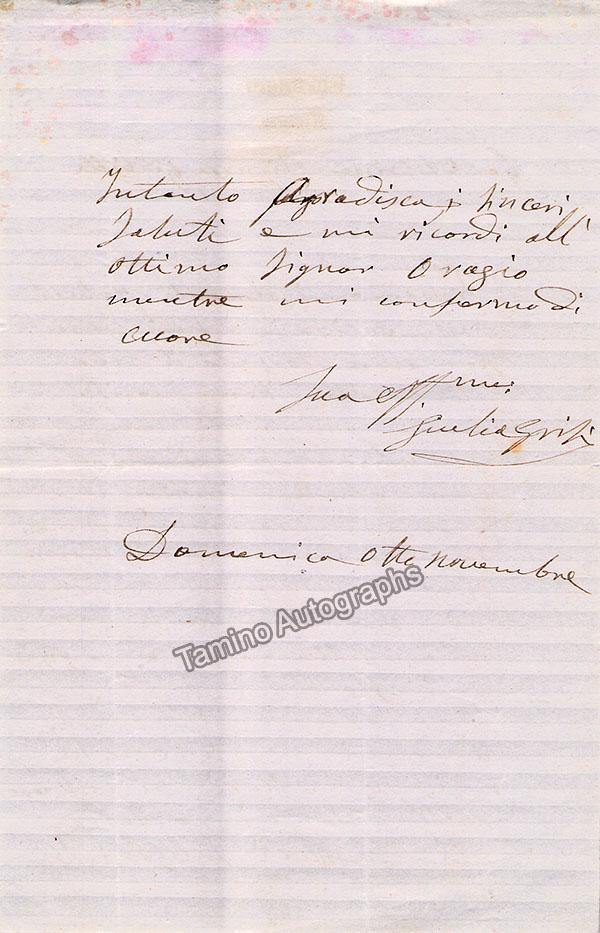 Intanto Agradisca i sinceri
saluti e mi ricordi all'
ottimo Signor Orazio
mentre mi confermo di
cuore
Sua aff me:
Giulia Grisi
Domenica otto novembre
Tamino Autographs